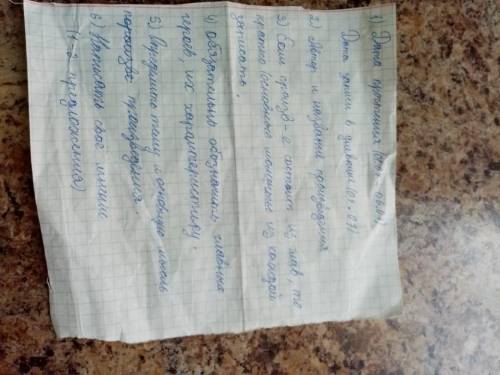 1) Дата прочтения (
Дата записи в дневник (
2) Автор и название произведения
3) Если произв-е состоит из глав, то
кратко (основные моменты) из каждой
записать.
4) Обязательно обозначить главных
героев, их характеристику.
5) Определить тему и основную мысль
произведения.
6) Написать своё мнение
предложения)